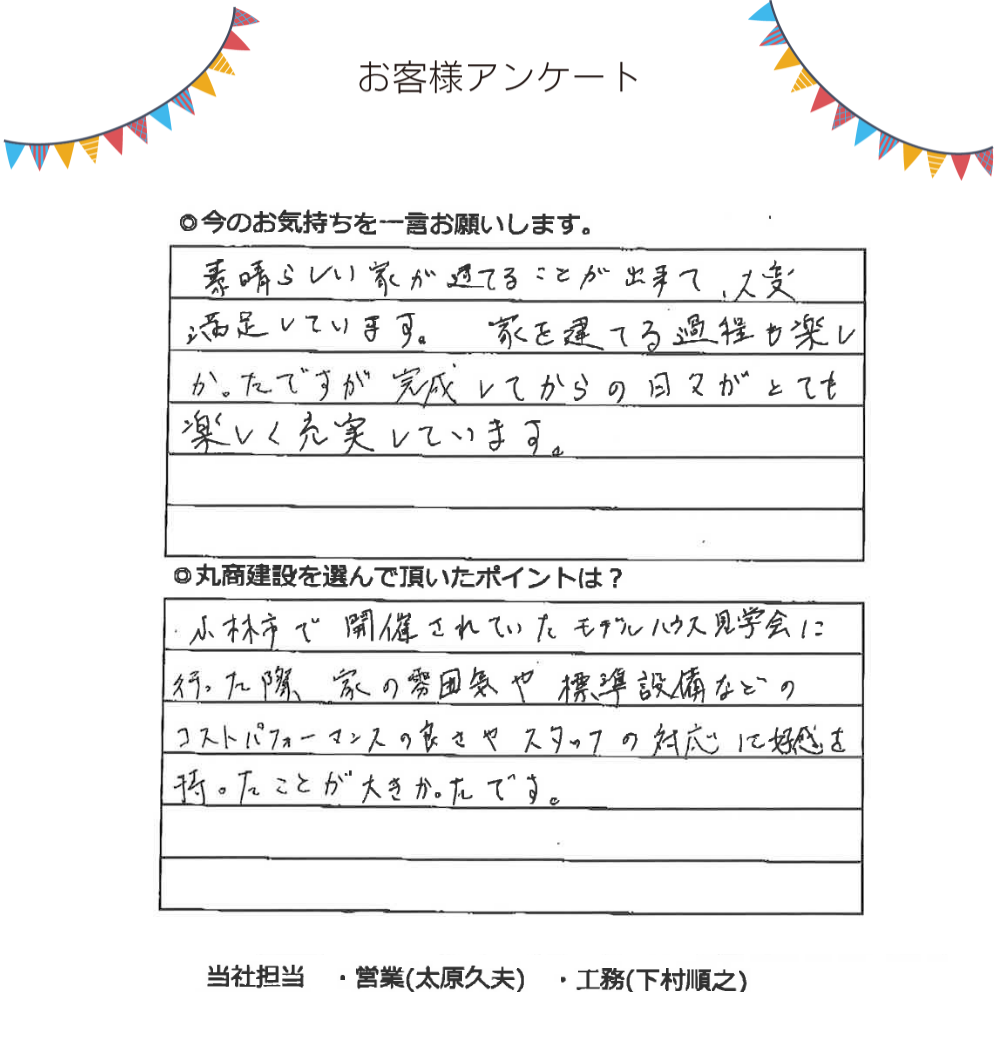 お客様アンケート
◎今のお気持ちを一言お願いします。
素晴らしい家が建てることが出来て、大変
満足しています。 家を建てる過程も楽し
かったですが完成してからの日々がとても
楽しく充実しています。
◎丸商建設を選んで頂いたポイントは？
小林市で開催されていたモデルハウス見学会に
行った際 家の雰囲気や標準設備などの
コストパフォーマンスの良さやスタッフの対応に好感を
持ったことが大きかったです。
当社担当 ・営業(太原久夫) ・工務(下村順之)